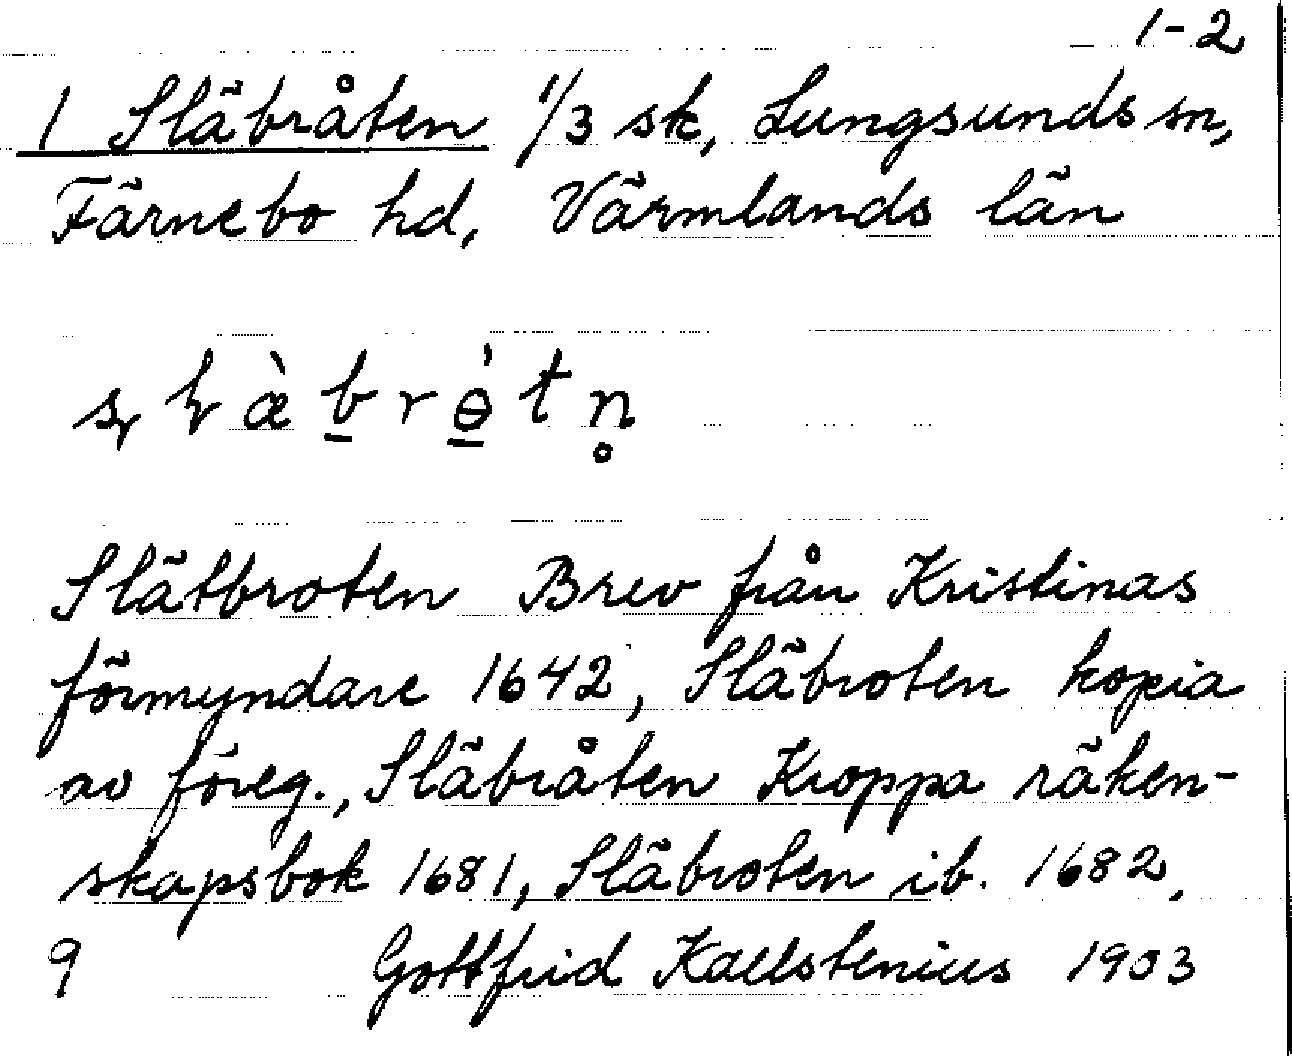 1-2
1 Släbråten 1/3 sk, Lungsunds sn,
Färnebo hd, Värmlands län
Slätbroten Brev från Kristinas
förmyndare 1642, Släbroten kopia
av föreg., Släbråten Kroppa räken-
skapsbok 1681, Släbroten ib. 1682.
9 Gottfrid Kallstenius 1903